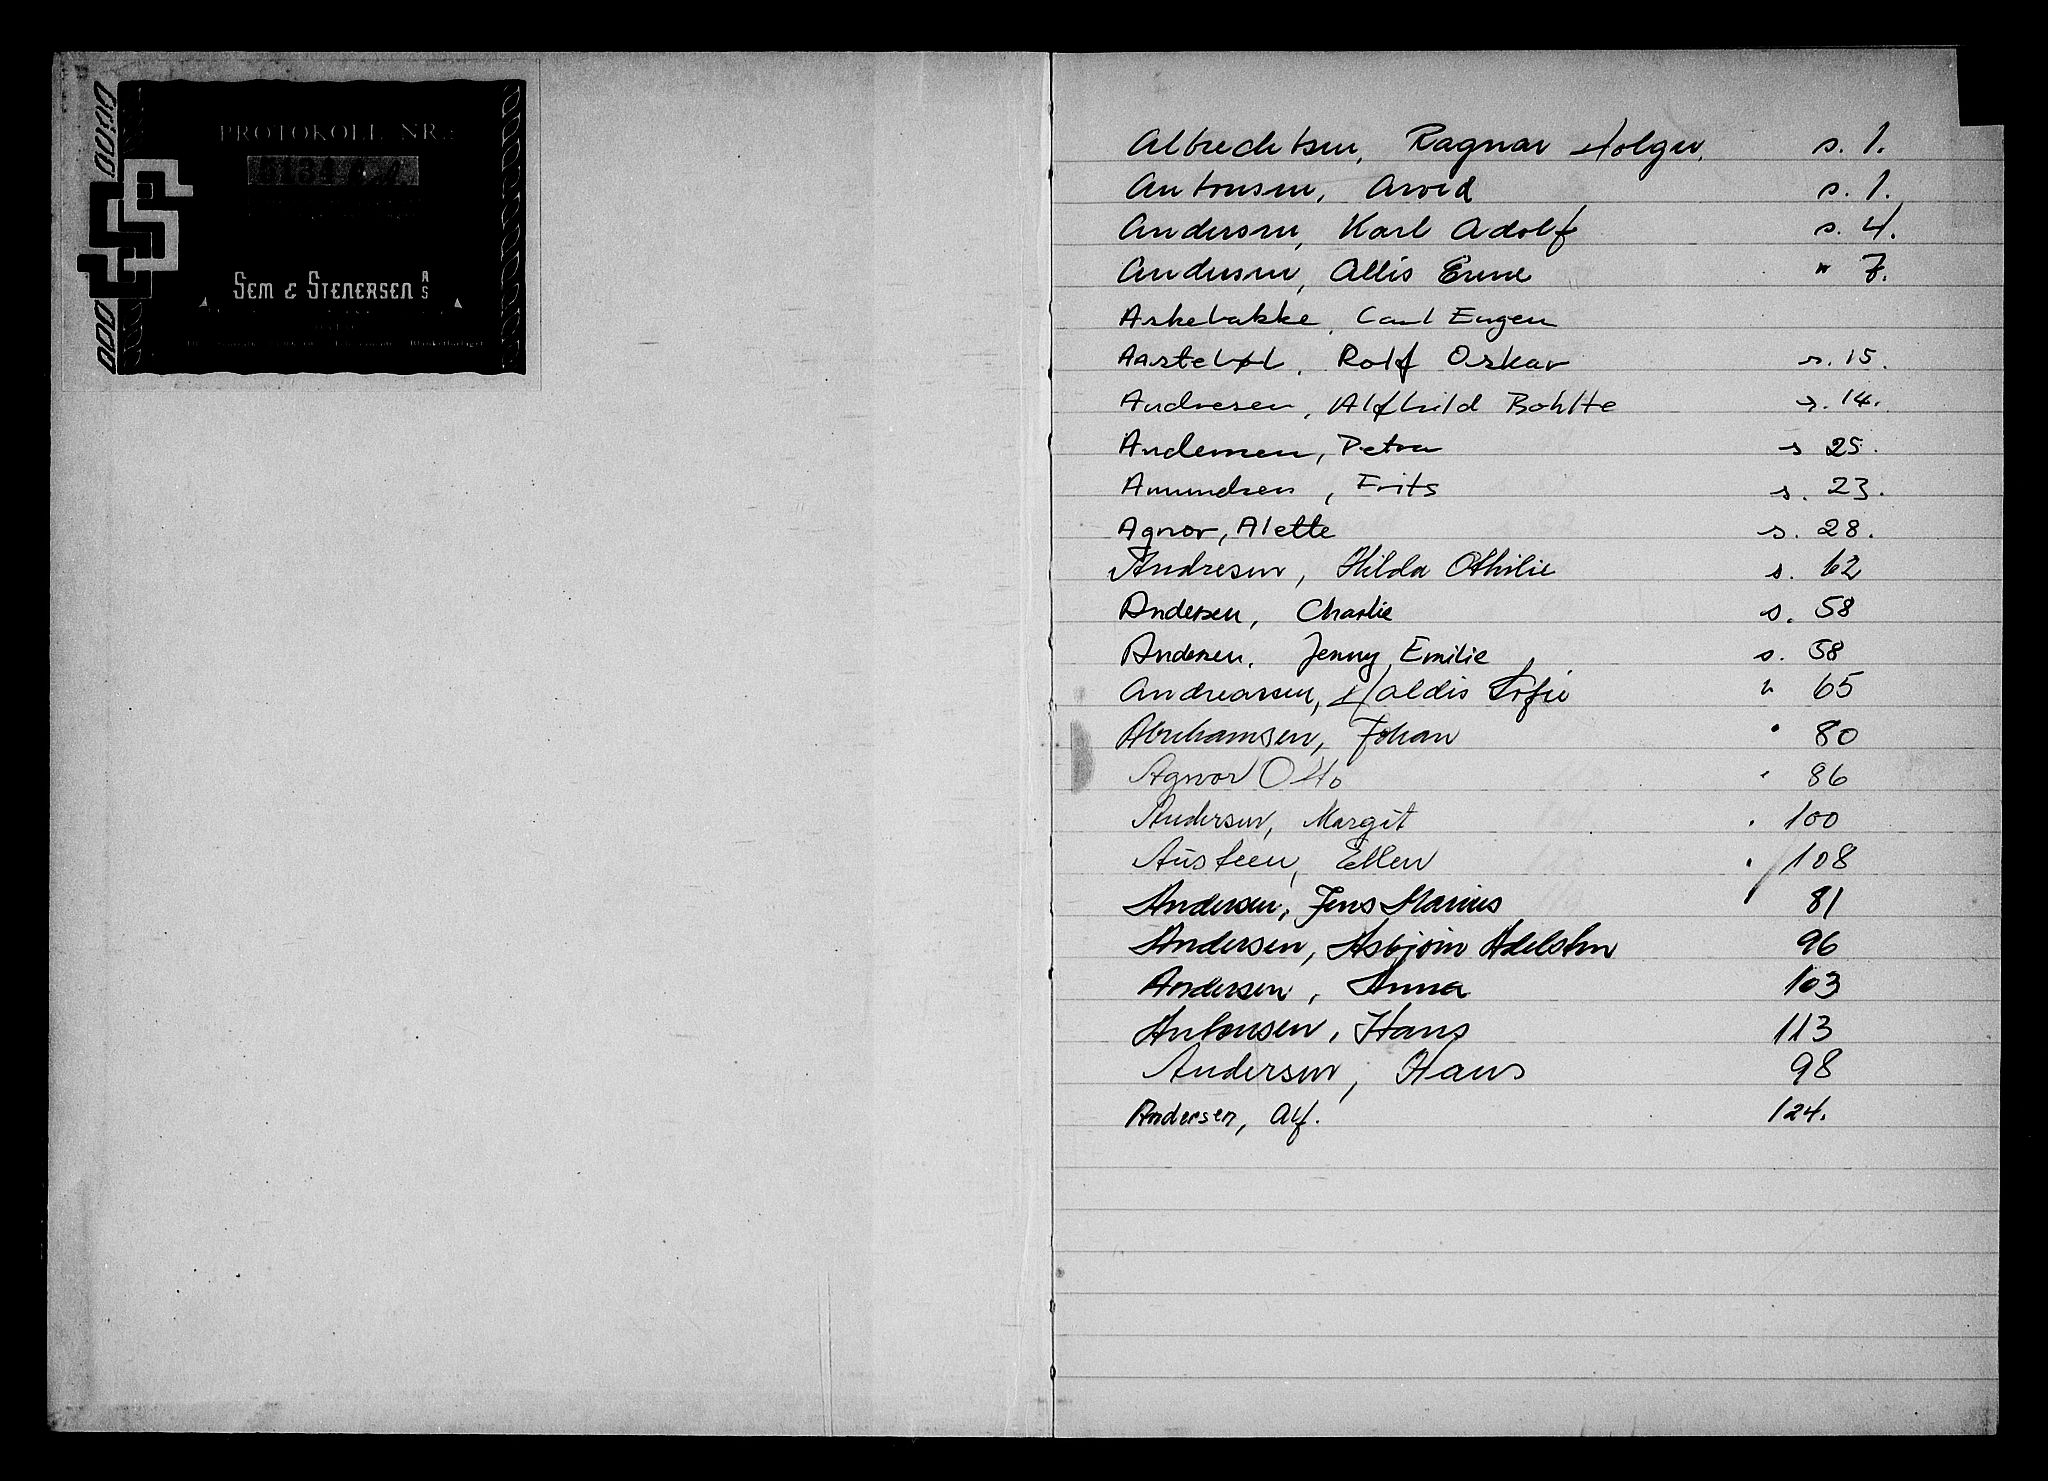 PROTOKOLL NR.:
SEM & STENERSEN A/S
Albrechtsen, Ragnar Holger. s. 1.
Antonsen, Arvid s. 1.
Andersen, Karl Adolf s. 4.
Andersen, Allis Erne " 7.
Askebakke, Carl Eugen
Aasteböl, Rolf Oskar s. 15.
Andresen, Alfhild Bohlte s. 14.
Andersen, Petra s 25.
Amundsen, Frits s. 23.
Agnor, Alette s. 28.
Andresen, Hilda Othilie s. 62
Andersen, Charlie s. 58
Andersen, Jenny Emilie s. 58
Andreassen, Haldis Sofie " 65
Abrahamsen, Johan " 80
Agnor Otto " 86
Andersen, Margit " 100
Austeen, Ellen " 108
Andersen, Jens Marius 81
Andersen, Asbjørn Adelsten 96
Andersen, Anna 103
Antonsen, Hans 113
Andersen, Hans 98
Andersen, Alf. 124.